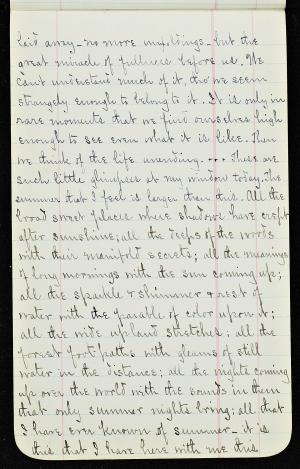 laid away - no more unfoldings - but the
great miracle of fullness before us. We
can't understand much of it, tho' we seem
strangely enough to belong to it. It is only in
rare moments that we find ourselves high
enough to see even what it is like. Then
we think of the life unending. ... These are
such little glimpses at my window today. The
summer that I feel is larger than this. All the
broad sweet places where shadows have crept
after sunshine; all the deeps of the woods
with their manifold secrets; all the meanings
of long mornings with the sun coming up;
all the sparkle & shimmer & rest of
water with the parable of color upon it;
all the wide upland stretches; all the
forest foot paths with gleams of still
water in the distance; all the nights coming
up over the world with the sounds in them
that only summer nights bring; all that
I have ever known of summer - it is
this that I have here with me this